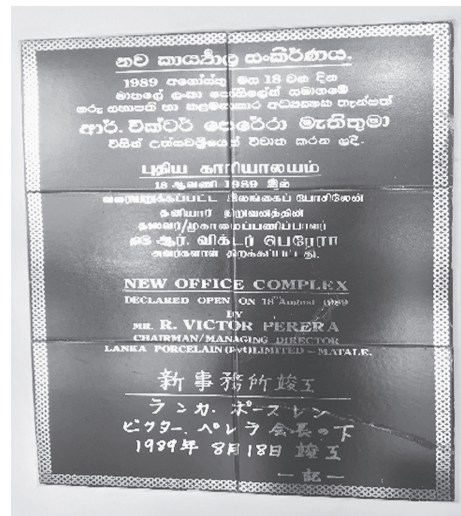 නව කාර්යාල සංකීර්ණය.
1989 අගෝස්තු මස 18 වන දින
මාතලේ ලංකා පෝසිලේන් සමාගමේ
ගරු සභාපති හා කළමනාකාර අධ්‍යක්ෂක තැන්පත්
ආර්. වික්ටර් පෙරේරා මැතිතුමා
විසින් උත්සවශ්‍රීයෙන් විවෘත කරන ලදි.
புதிய காரியாலயம்
18 ஆவணி 1989 இல்
வரையறுக்கப்பட்ட இலங்கைப் போசிலேன்
தனியார் நிறுவனத்தின்
தலைவர்/முகாமைப்பணிப்பாளர்
ஆர். விக்டர் பெரேரா
அவர்களால் திறக்கப்பட்டது.
NEW OFFICE COMPLEX
DECLARED OPEN ON 18th August 1989
BY
MR. R. VICTOR PERERA
CHAIRMAN/MANAGING DIRECTOR
LANKA PORCELAIN (PVT) LIMITED - MATALE.
新事務所竣工
ランカ.ポースレン
ビクター.ペレラ会長の下
1989年 8月18日 竣工
一記一